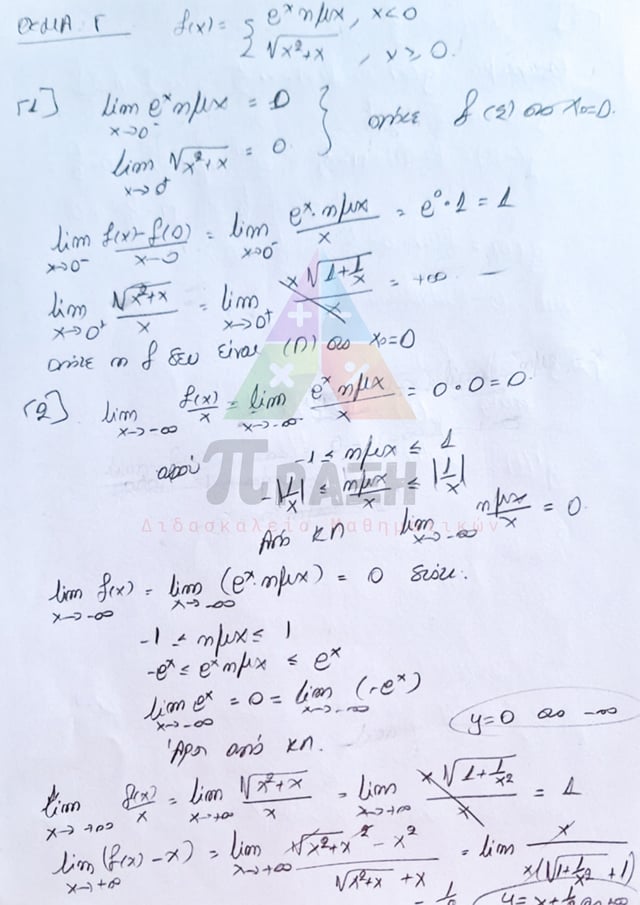 ΘΕΜΑ Γ f(x) = { e^x ημx, x<0
√(x²+x), x ≥ 0.
Γ1] lim_{x→0⁻} e^x ημx = 0
lim_{x→0⁺} √(x²+x) = 0. } οπότε f (Σ) στο x₀=0.
lim_{x→0⁻} (f(x)-f(0))/(x-0) = lim_{x→0⁻} (e^x·ημx)/x = e⁰·1 = 1
lim_{x→0⁺} √(x²+x)/x = lim_{x→0⁺} x√(1+1/x)/x = +∞
οπότε η f δεν είναι (Π) στο x₀=0
Γ2] lim_{x→-∞} f(x)/x = lim_{x→-∞} (e^x ημx)/x = 0·0 = 0.
αφού -1 ≤ ημx ≤ 1
-|1/x| ≤ ημx/x ≤ |1/x|
ΠΡΑΞΗ
Διδασκαλείο Μαθηματικών
Από ΚΠ lim_{x→-∞} ημx/x = 0.
lim_{x→-∞} f(x) = lim_{x→-∞} (e^x·ημx) = 0 διότι:
-1 ≤ ημx ≤ 1
-e^x ≤ e^x ημx ≤ e^x
lim_{x→-∞} e^x = 0 = lim_{x→-∞} (-e^x)
Άρα από ΚΠ.
y=0 στο -∞
lim_{x→+∞} f(x)/x = lim_{x→+∞} √(x²+x)/x = lim_{x→+∞} x√(1+1/x²)/x = 1
lim_{x→+∞} (f(x)-x) = lim_{x→+∞} (√(x²+x)² - x²)/(√(x²+x) + x) = lim x/(x(√(1+1/x²) + 1))
= 1/2 y = x+1/2 στο +∞